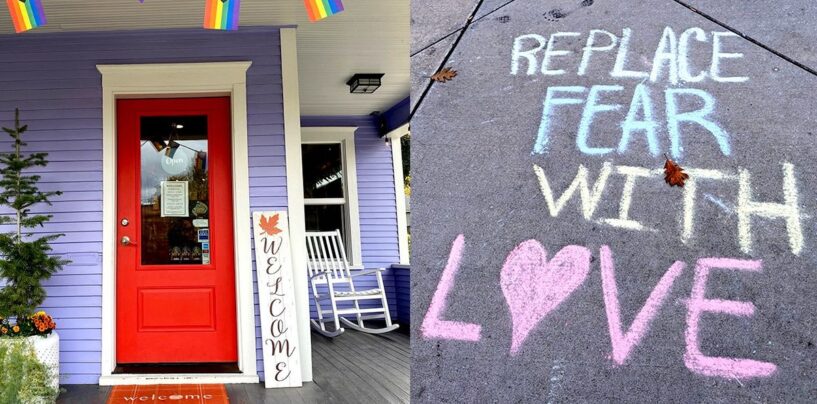 Open
WELCOME
welcome
REPLACE
FEAR
WITH
L VE